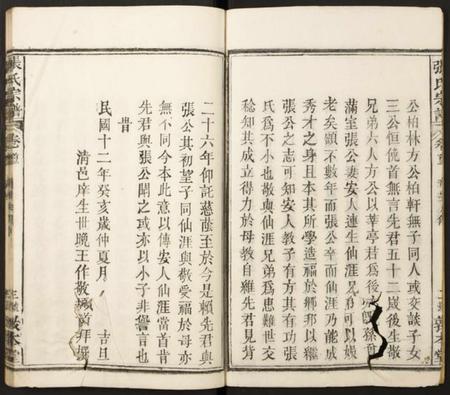 張氏宗譜
公柏林方公柏軒無子同人或交談子女
三公恒僥首無言先君五十二歲後生敬
兄弟六人方公以莘亭君為後
滿室張公妻安人連生仙涯兄弟可以娛
老矣顧不數年而張公卒而仙涯乃能成
秀才之身且本其所學造福於鄉邦以繼
張公之志可知安人教子有方其有功張
氏為不小也敬與仙涯兄弟為患難世交
稔知其成立得力於母教自維先君見背
二十六年仰託慈蔭至於今是賴先君與
張公其初望子同仙涯與敬受福於母亦
無不同今本此意以傳安人仙涯當首肯
先君與張公聞之或亦以小子非譽言也
昔
民國十二年癸亥歲仲夏月 吉旦
清邑庠生世晚王作敬頓首拜撰
張氏宗譜 卷首
敦本堂